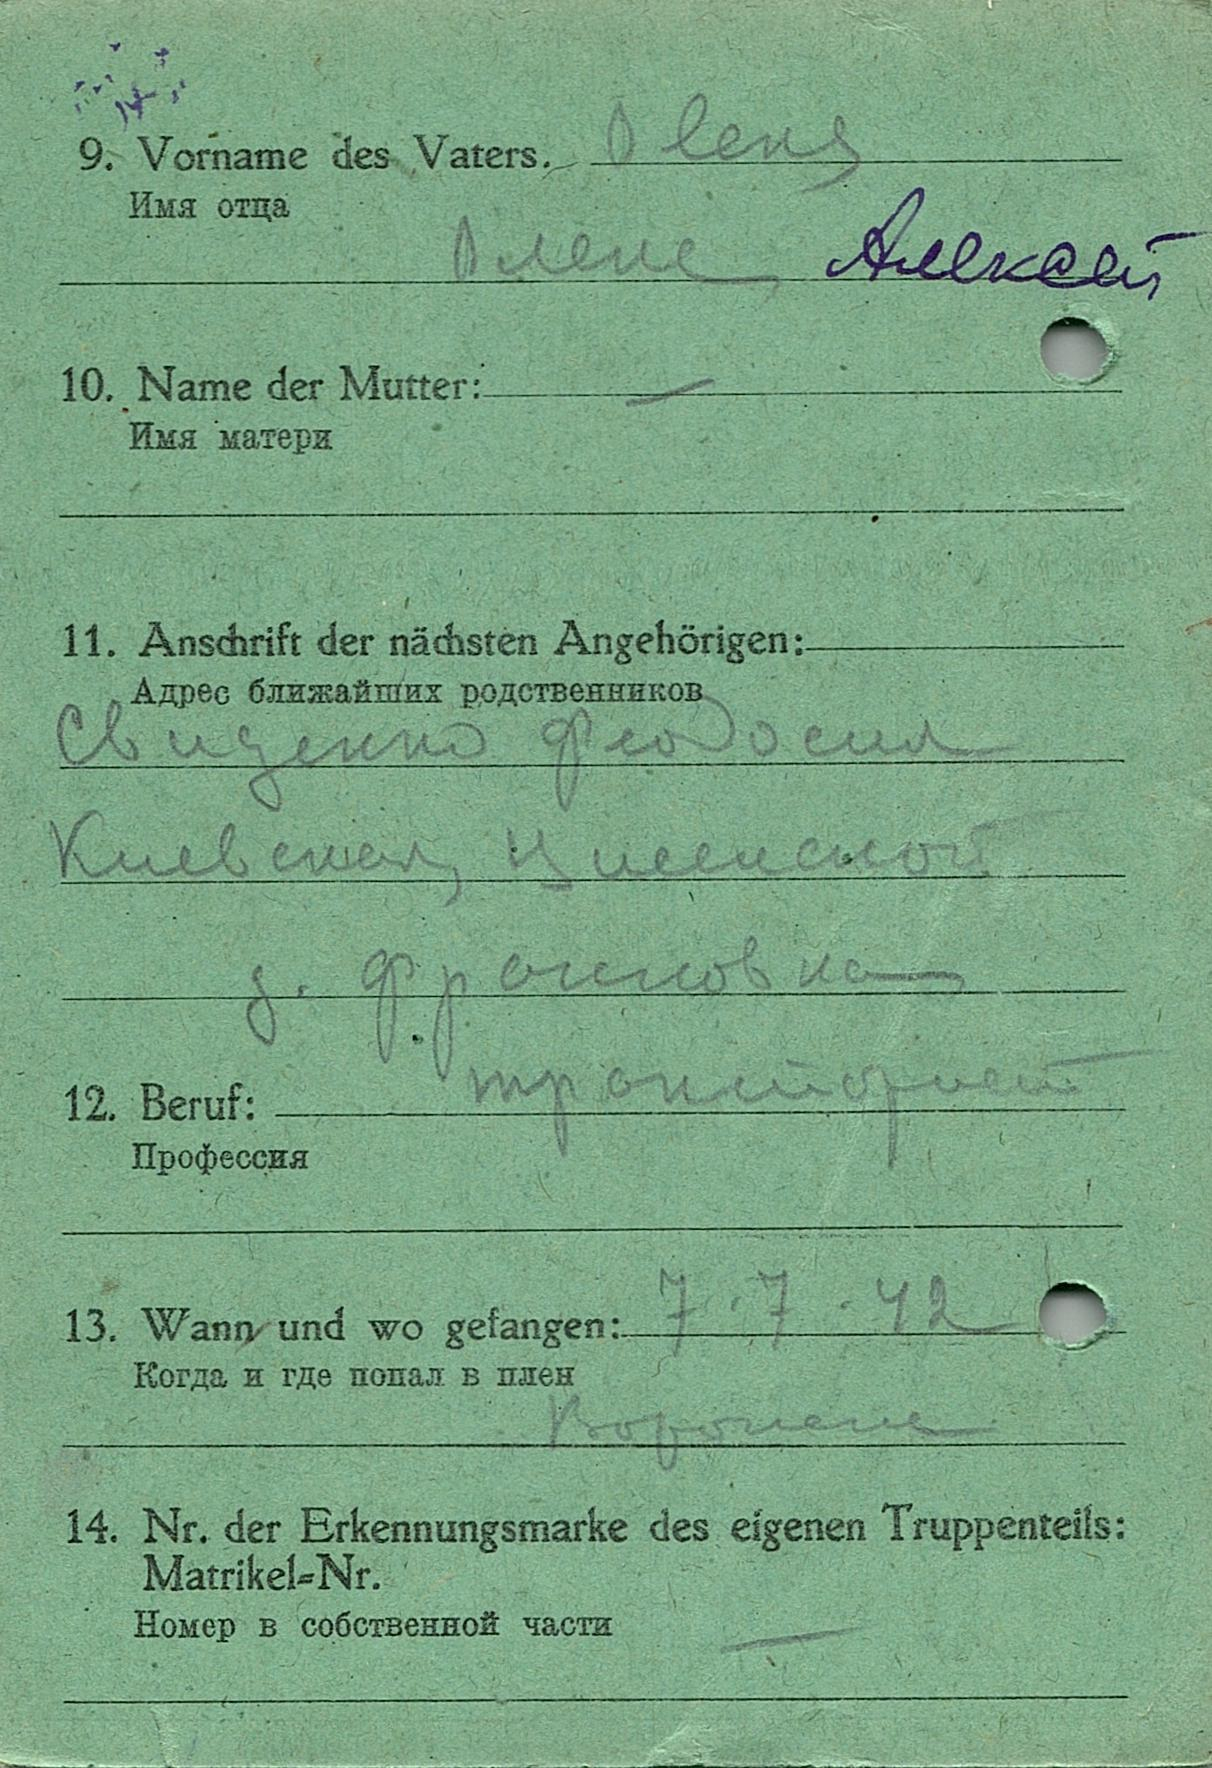 9. Vorname des Vaters.
Имя отца
Алексей
10. Name der Mutter: —
Имя матери
11. Anschrift der nächsten Angehörigen:
Адрес ближайших родственников
Феодосия
Киевская,
д.
12. Beruf: тракторист
Профессия
13. Wann und wo gefangen: 7.7.42
Когда и где попал в плен
14. Nr. der Erkennungsmarke des eigenen Truppenteils:
Matrikel-Nr.
Номер в собственной части —